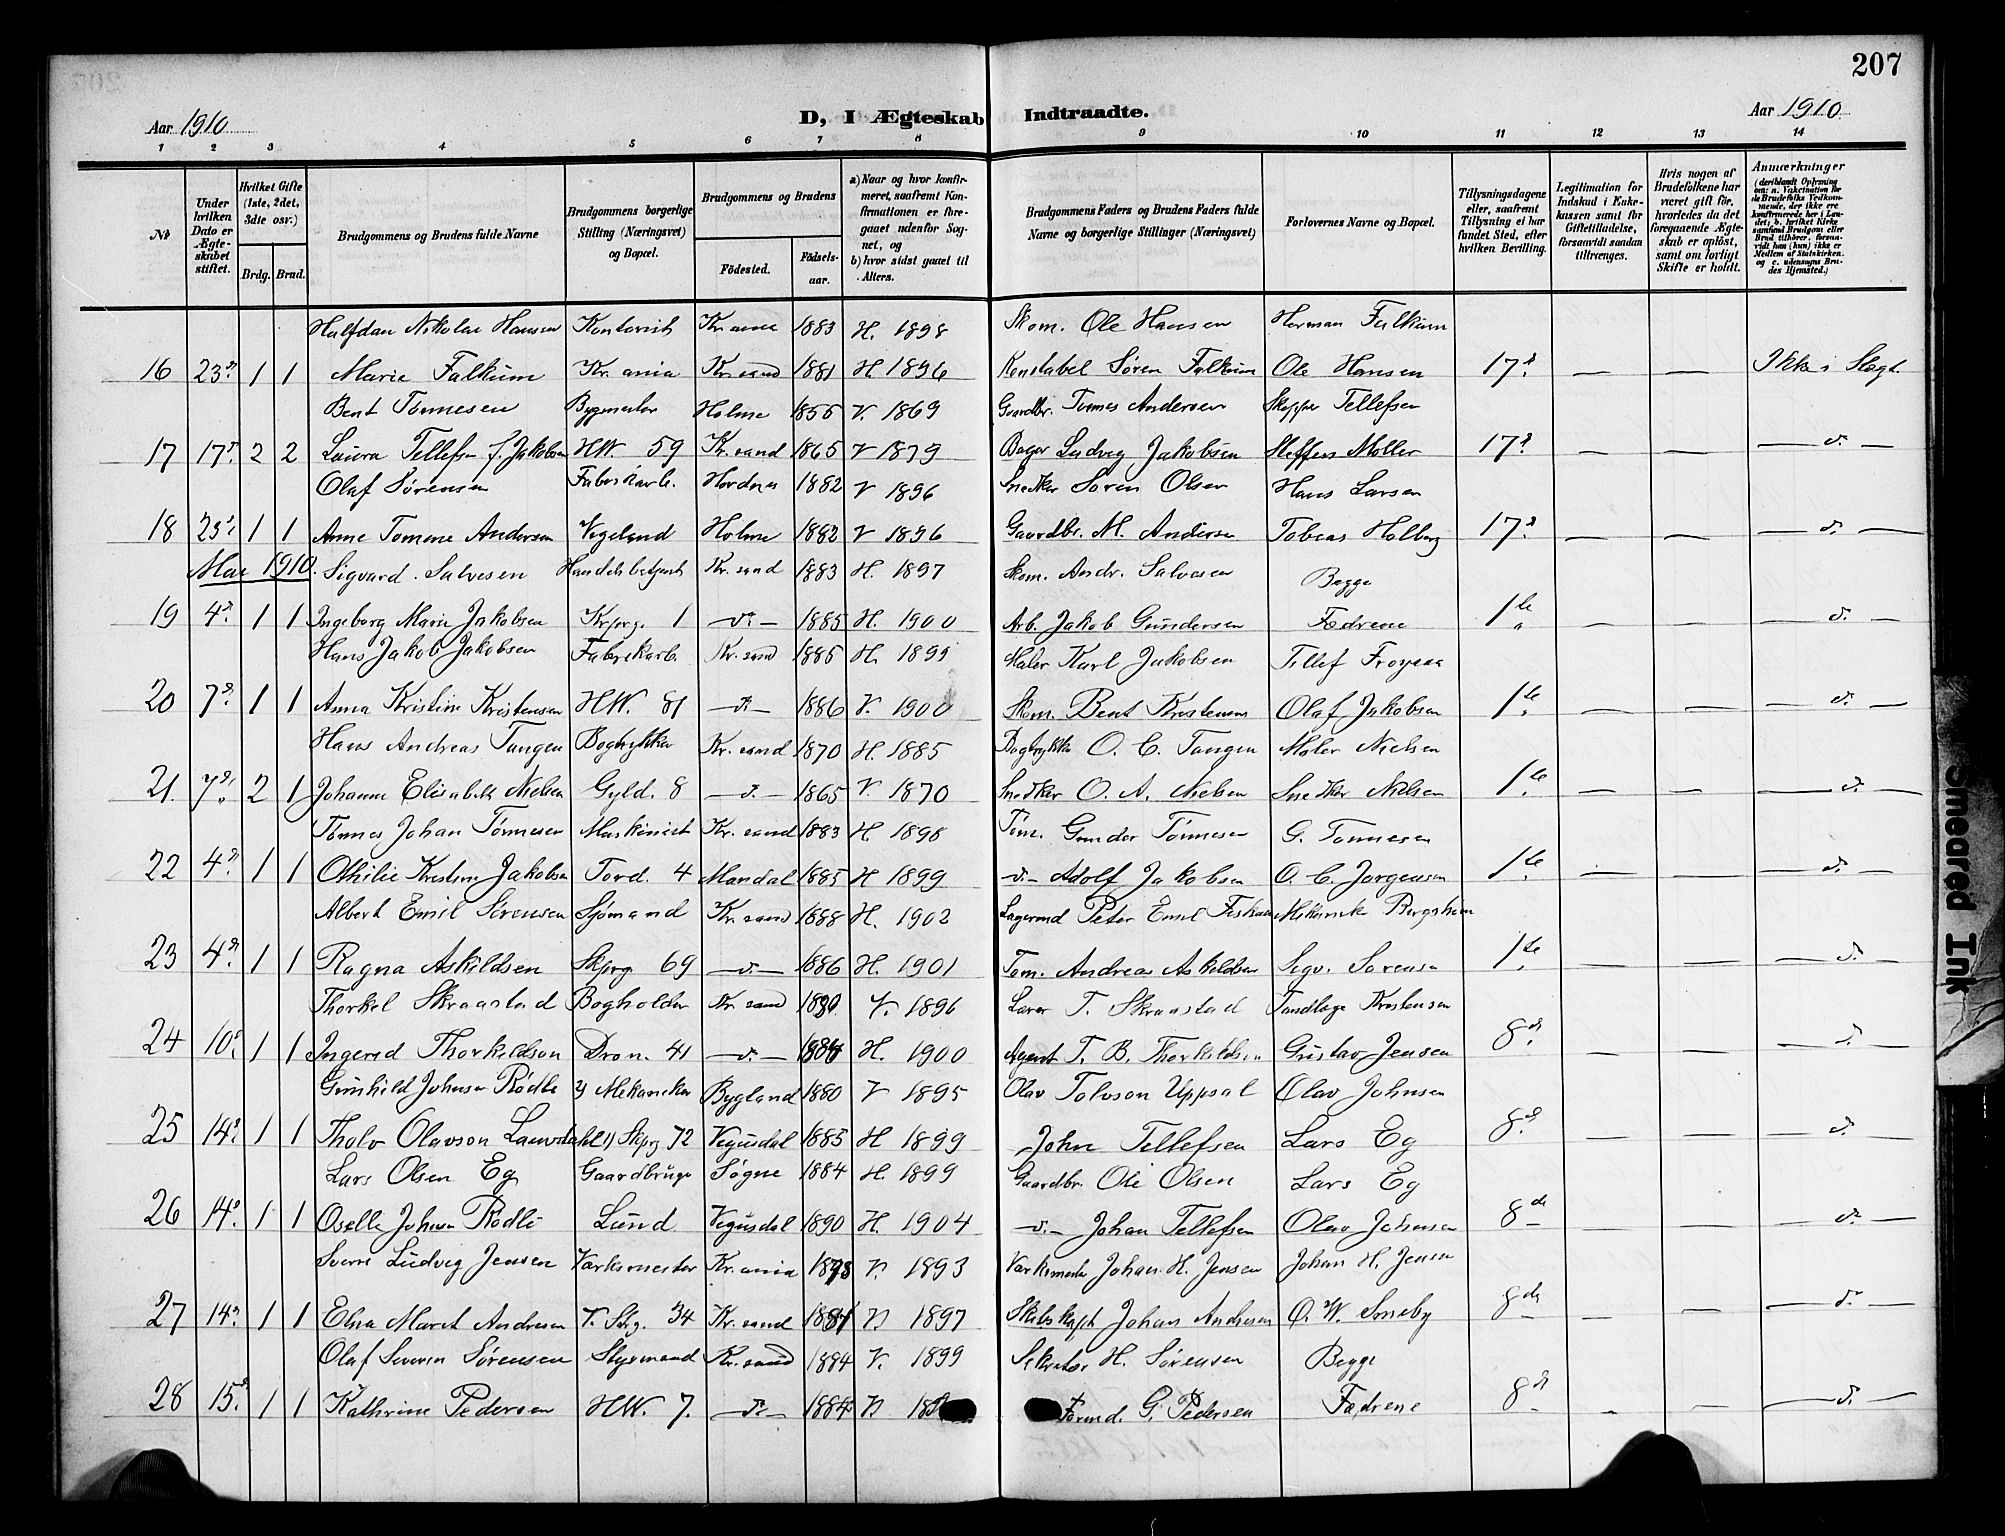 207
Aar 1910
D, I Ægteskab Indtraadte.
Aar 1910.
1 2 3 4 5 6 7 8 9 10 11 12 13 14
№
Under hvilken Dato er Ægteskabet stiftet.
Hvilket Gifte (1ste, 2det, 3die osv.)
Brdg. Brud.
Brudgommens og Brudens fulde Navne
Brudgommens borgerlige Stilling (Næringsvei) og Bopæl.
Brudgommens og Brudens
Födested. Födselsaar.
a) Naar og hvor konfirmeret, saafremt Konfirmationen er foregaaet udenfor Sognet, og b) hvor sidst gaaet til Alters.
Brudgommens Faders og Brudens Faders fulde Navne og borgerlige Stillinger (Næringsvei)
Forlovernes Navne og Bopæl.
Tillysningsdagene eller, saafremt Tillysning ei har fundet Sted, efter hvilken Bevilling.
Legitimation for Indskud i Enkekassen samt for Giftetilladelse, forsaavidt saadan tiltrænges.
Hvis nogen af Brudefolkene har været gift før, hvorledes da det foregaaende Ægteskab er opløst, samt om lovligt Skifte er holdt.
Anmærkninger
(deriblandt Oplysning om: a. Vakcination for de Brudefolks Vedkommende, der ikke ere konfirmerede her i Landet; b. hvilket Kirkesamfund Brudgom eller Brud tilhører, forsaavidt han (hun) ikke er Medlem af Statskirken, og c. udensogns Brudes Hjemsted.)
Halfdan Nikolai Hansen Kontorist Kr. ania 1883 H. 1898 Skom. Ole Hansen Herman Falkum
16 23d. 1 1 Marie Falkum Kr. ania Kr. sand 1881 H. 1896 Konstabel Søren Falkum Ole Hansen 17d. — — Ikke i Slægt
Bent Tønnesen Bygmester Holme 1855 V. 1869 Gaardbr. Tønnes Andersen Skipper Tellefsen
17 17d. 2 2 Laura Tellefsen f. Jakobsen HW. 59 Kr. sand 1865 V 1879 Bager Ludvig Jakobsen Steffen Møller 17d. — — — d. —
Olaf Sørensen Fabrikarb. 1882 V 1896 Snedker Søren Olsen Hans Larsen
18 23d. 1 1 Anne Tomine Andersen Vegeland Holme 1882 V 1896 Gaardbr. M. Andersen Tobias Holberg 17d. — — — d. —
Mai 1910. Sigvard Salvesen Handelsbetjent Kr. sand 1883 H. 1897 Skom. Andr. Salvesen Begge
19 4d. 1 1 Ingeborg Marie Jakobsen 1 — d. — 1885 H. 1900 Arb. Jakob Gundersen Fædrene 1te — — — d. —
Hans Jakob Jakobsen Fabrikarb. Kr. sand 1885 H. 1899 Maler Karl Jakobsen Tellef Frøysaa
20 7d. 1 1 Anna Kristine Kristensen HW. 81 — d. — 1886 V. 1900 Skom. Bent Kristensen Olaf Jakobsen 1te — — — d. —
Hans Andreas Tangen Bogtrykker Kr. sand 1870 H. 1885 Bogtrykker O. C. Tangen Maler Nielsen
21. 7d. 2 1 Johanne Elisabeth Nielsen Gyld. 8 — d. — 1865 V. 1870 Snedker O. A. Nielsen Snedker Nielsen 1te — — — d. —
Tønnes Johan Tønnesen Maskinist Kr. sand 1883 H. 1898 Tøm. Gunder Tønnesen G. Tønnesen
22 4d. 1 1 Othilie Kristine Jakobsen Tord. 4 Mandal 1885 H 1899 — d. — Adolf Jakobsen O. C. Jørgensen 1te — — — d. —
Albert Emil Sørensen Sjømand Kr. sand 1888 H. 1902 Lagermd Peter Emil Mekanik. Bergstrøm
23 4d. 1 1 Ragna Askildsen Skprg. 69 — d. — 1886 H. 1901 Tøm. Andreas Askildsen Sigv. Sørensen 1te — — — d. —
Thorkel Skraastad Bogholder Kr. sand V. 1896 Lærer T. Skraastad Tandlæge Kristensen
24 10d. 1 1 Ingerid Thorkildsen Dron. 41 — d. — H. 1900 Agent T. B. Thorkildsen Gustav Jensen 8d. — — — d. —
Gunhild Johnsen Rødli 2) Mekaniker Bygland 1880 V 1895 Olav Tolvson Uppsal Olav Johnsen
25 14d. 1 1 Tholv Olavson Lauvdahl 1) Skprg 72 Vegusdal 1885 H 1899 John Tellefsen Lars Eg 8d. — — — d. —
Lars Olsen Eg Gaardbruger Søgne 1884 H. 1899 Gaardbr. Ole Olsen Lars Eg
26 14d. 1 1 Oselle Johnsen Rødli Lund Vegusdal 1890 H. 1904 — d. — Johan Tellefsen Olav Johnsen 8de — — — d. —
Sverre Ludvig Jensen Værksmester Kr. ania 1878 V. 1893 Værksmester Johan H. Jensen Johan H. Jensen
27 14d. 1 1 Elna Maret Andresen V. Stg. 34 Kr. sand V 1897 Skibskapt Johan Andresen O. W. Smeby 8de — — — d. —
Olaf Severin Sørensen Styrmand Kr. sand 1884 V. 1899 Sekretær H. Sørensen Begge
28 15d. 1 1 Kathrine Pedersen HW. 7. — d. — 1884 V Formd. G. Pedersen Fædrene 8d. — — — d. —
Smeared Ink